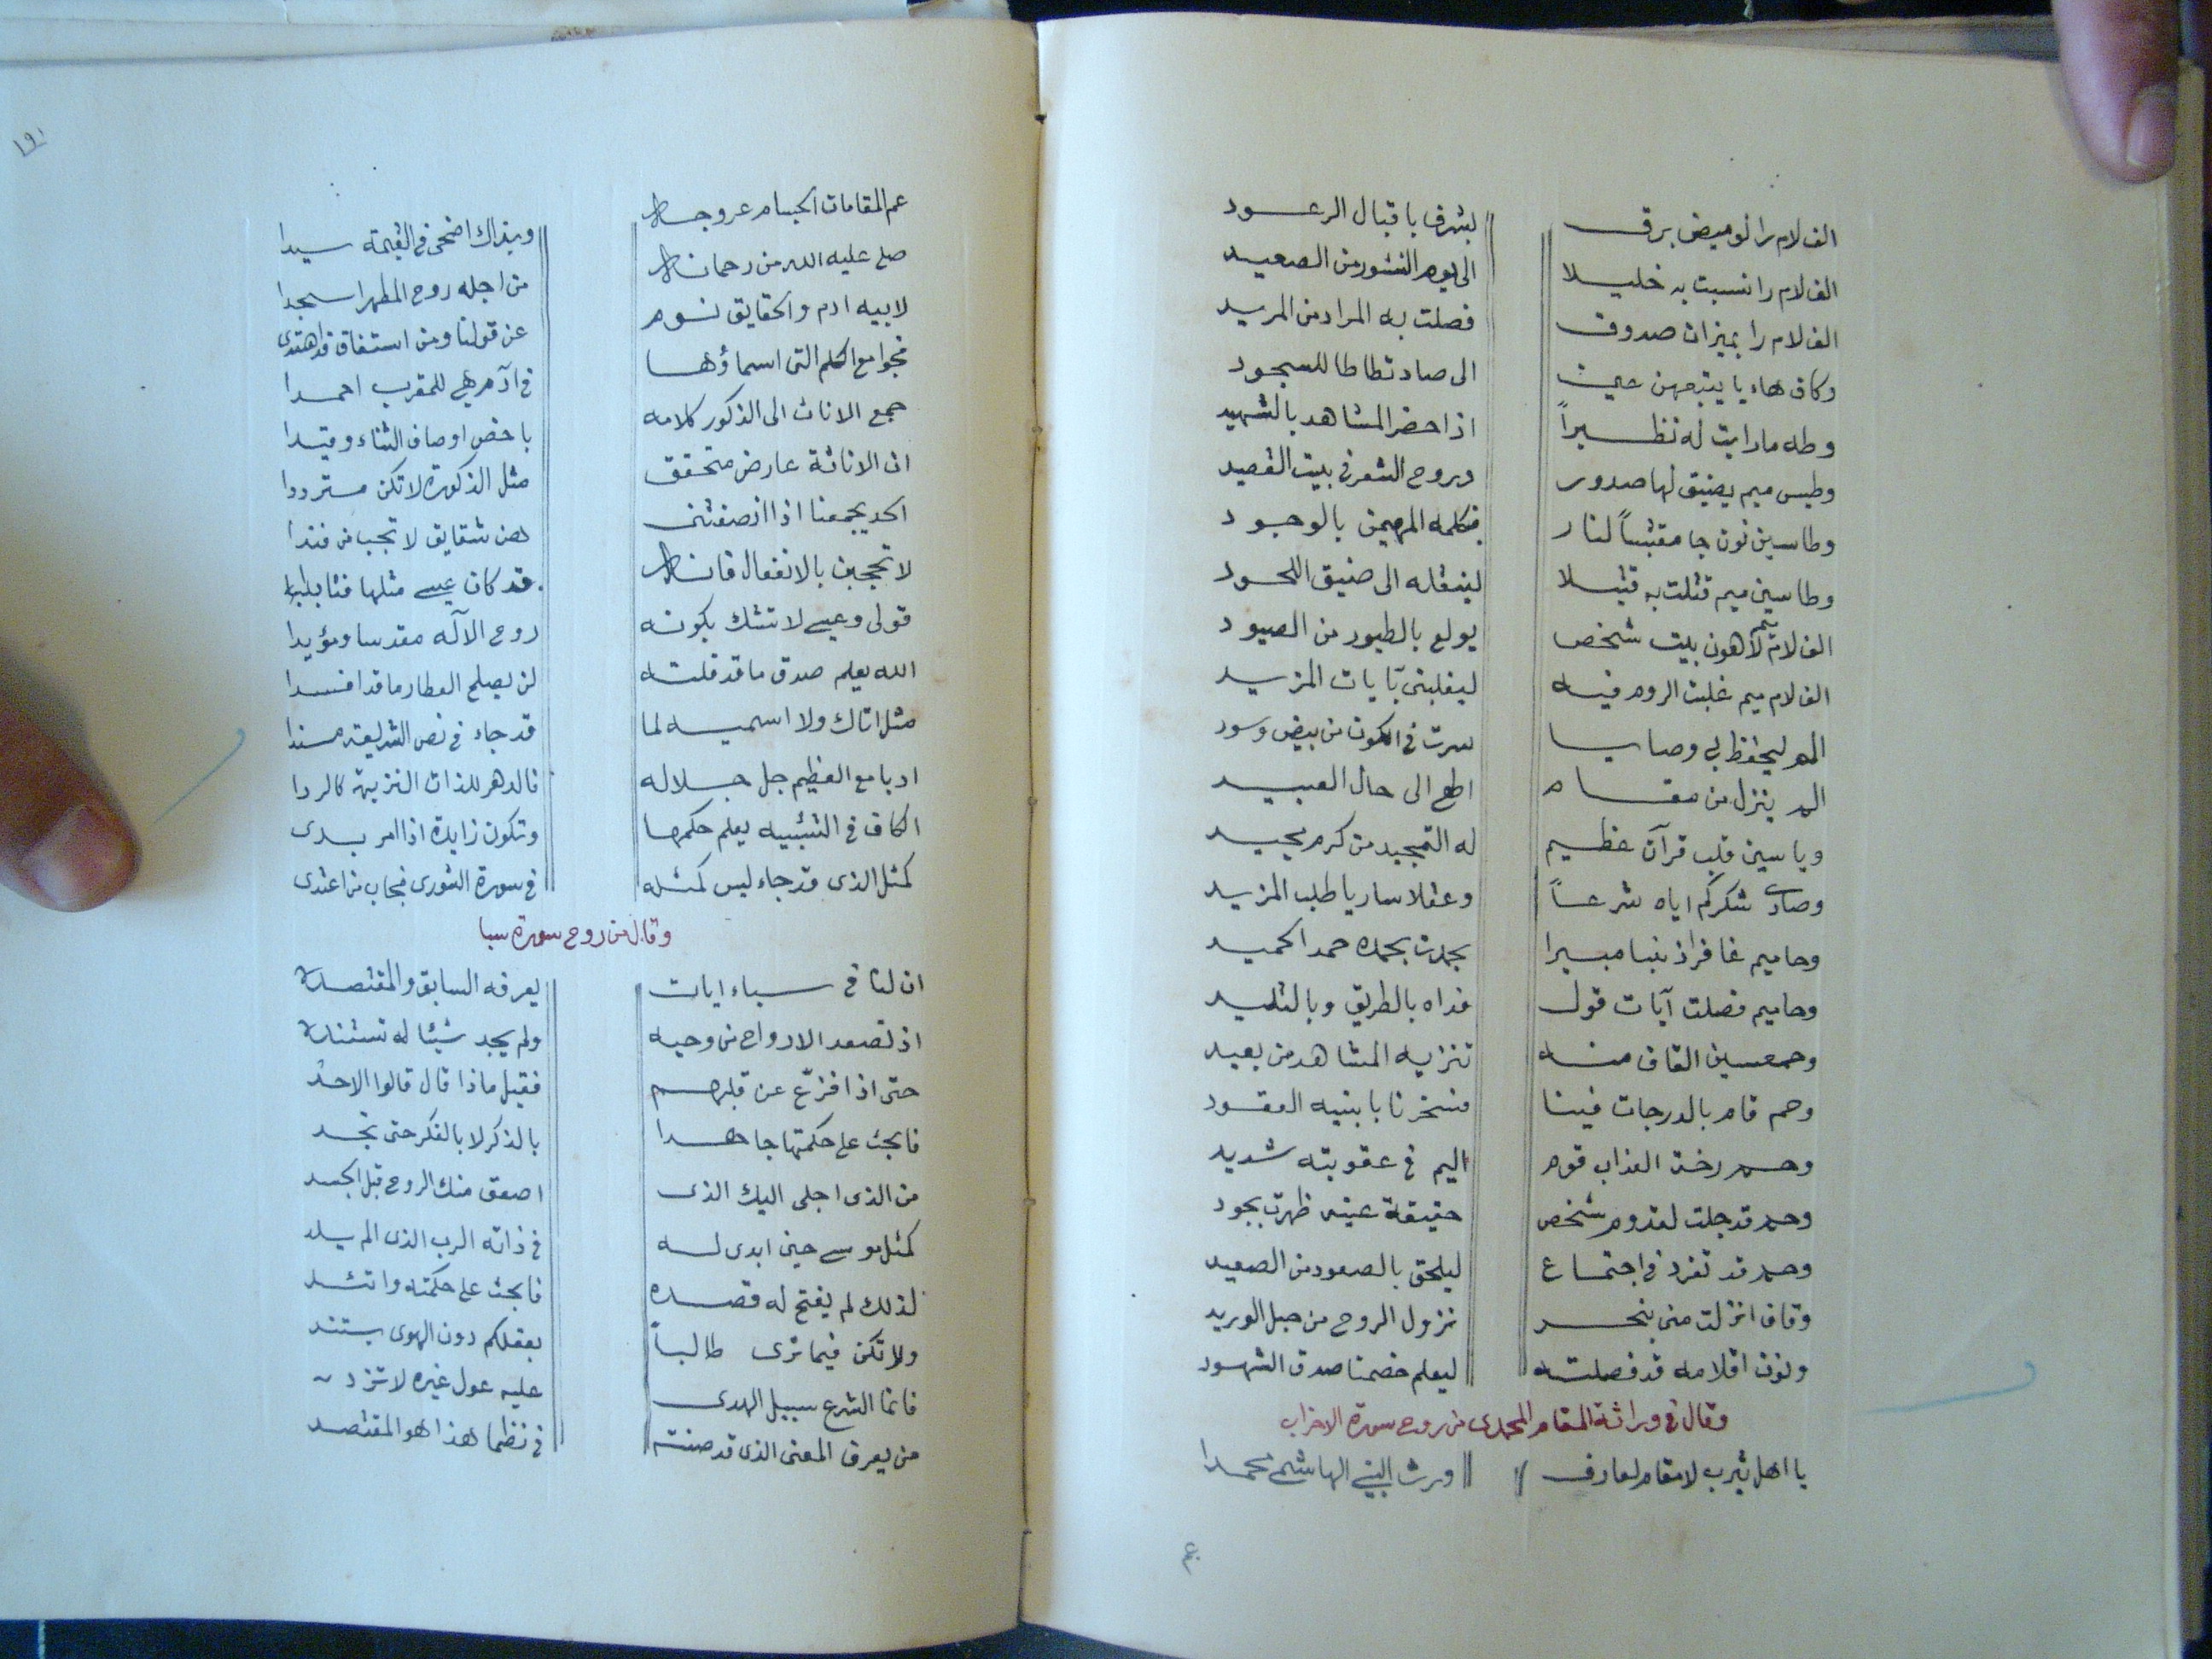 الف لام را لوميض برق    بشرف باقبال الرعود
الف لام را نسبت به خليلا    الى يوم النشور من الصعيد
الف لام را بميزان صدوق    فصلت به المراد من المريد
وكاف هاء يا يتبعهن عين    الى صاد تطاطا للسجود
وطه ما رايت له نظيراً    اذا حضر المشاهد بالشهيد
وطس ميم يضيق لها صدور    وروح الشعر في بيت القصيد
وطاسين نون جا مقتبساً لنار    فكلمه المهيمن بالوجود
وطاسين ميم قتلت به قتيلا    لينقله الى ضيق اللحود
الف لام ميم لاهون بيت شخص    يولع بالطيور من الصيود
الف لام ميم غلبت الروم فيه    ليغلبني بآيات المزيد
الم ليحفظ بي وصايا    سرت في الكون من بيض وسود
الم ينزل من مقام    اطع الى حال العبيد
وياسين قلب قرآن عظيم    له التمجيد من كرم مجيد
وصاد شكركم اياه شرعاً    وعقلا ساريا طلب المزيد
وحاميم غافرا ذنبا مبيرا    بحمدت بحمده حمد الحميد
وحاميم فصلت آيات قول    فداه بالطريق وبالتليد
وحمعسين القاف منه    تنزيه المشاهد من بعيد
وحم قام بالدرجات فينا    فسخرنا بابنيه العقود
وحم دخن العذاب قوم    اليم في عقوبته شديد
وحم قد جلت لقدوم شخص    حقيقة عينه ظهرت بجود
وحم قد تفرد في اجتماع    ليلحق بالصعود من الصعيد
وقاف انزلت مني بنحر    نزول الروح من حبل الوريد
ونون اقلامه قد فصلته    ليعلم خصمنا صدق الشهود
وقال في وراثة المقام المحمدي من روح سورة الاحزاب
يا اهل يثرب لا مقام لعارف    ورث النبي الهاشمي محمدا
عم المقامات الجسام عروجه    وبذاك اضحى في القيمة سيدا
صلى عليه الله من رحمانه    من اجله روح المطهر اسجدا
لابيه ادم والحقايق نوم    عن قولنا ومن استفاق قد اهتدى
فجوامع الكلم التي اسماؤها    في آدم هي للمقرب احمدا
جمع الاناث الى الذكور كلامه    باخص اوصاف الثناء وقيدا
ان الاناثة عارض متحقق    مثل الذكورة لا تكن مترددا
الحد يجمعنا اذا انصفتني    لهن شقايق لا تجب من فندا
لا تحجبن بالانفعال فانه    قد كان عيسى مثلها فتابلدا
قولي وعيسى لا تشك بكونه    روح الآله مقدسا ومؤيدا
الله يعلم صدق ما قد قلته    لن يصلح العطار ما قد افسدا
مثل اتاك ولا اسميه لما    قد جاء في نص الشريعة مسندا
ادبا مع العظيم جل جلاله    فالدهر للذات النزيهة كالردا
الكاف في التشبيه يعلم حكمها    وتكون زايدة اذا امر بدى
كمثل الذي قد جاء ليس كمثله    في سورة الشورى فجاب من اعتدى
وقال من روح سورة سبا
ان لنا في سباء ايات    يعرفه السابق والمقتصدة
اذ تصعد الارواح من وحيه    ولم يجد شيئا له تستندة
حتى اذا فزّع عن قلبهم    فقيل ماذا قال قالوا الاحد
فابحث على حكمتها جاهدا    بالذكر لا بالفكر حتى تجد
من الذي اجلى اليك الذي    اصعق منك الروح قبل الجسد
كمثل موسى حين ابدى له    في ذاته الرب الذي الم يلد
لذلك لم يفتح له قصده    فابحث على حكمته واتئد
ولا تكن فيما ترى طالباً    بعقلكم دون الهوى يستند
فانما الشرع سبيل الهدى    عليه عول غيره لا تزد
من يعرف المعنى الذي قد صنته    في نظمنا هذا هو المقتصد